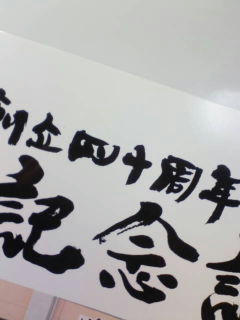 創立四十周年
記念